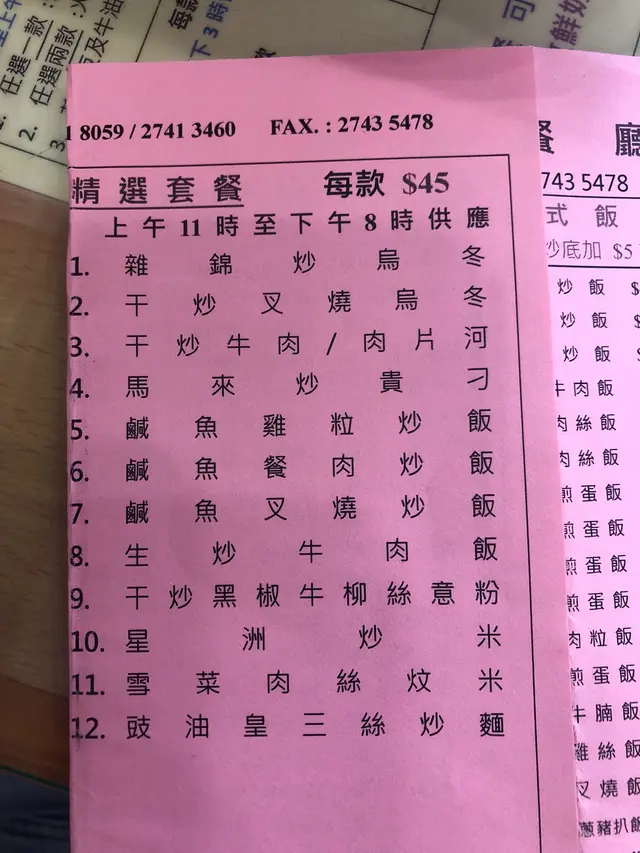 任選一款：
2. 任選兩款：
8059 / 2741 3460 FAX. : 2743 5478
精選套餐 每款 $45
上午11時至下午8時供應
1. 雜錦炒烏冬
2. 干炒叉燒烏冬
3. 干炒牛肉/肉片河
4. 馬來炒貴刁
5. 鹹魚雞粒炒飯
6. 鹹魚餐肉炒飯
7. 鹹魚叉燒炒飯
8. 生炒牛肉飯
9. 干炒黑椒牛柳絲意粉
10. 星洲炒米
11. 雪菜肉絲炆米
12. 豉油皇三絲炒麵
餐廳
743 5478
式飯
炒底加 $5
炒飯 $
炒飯 $
炒飯 $
牛肉飯
肉絲飯
肉絲飯
煎蛋飯
煎蛋飯
煎蛋飯
煎蛋飯
肉粒飯
煎蛋飯
牛腩飯
雞絲飯
叉燒飯
蔥豬扒飯